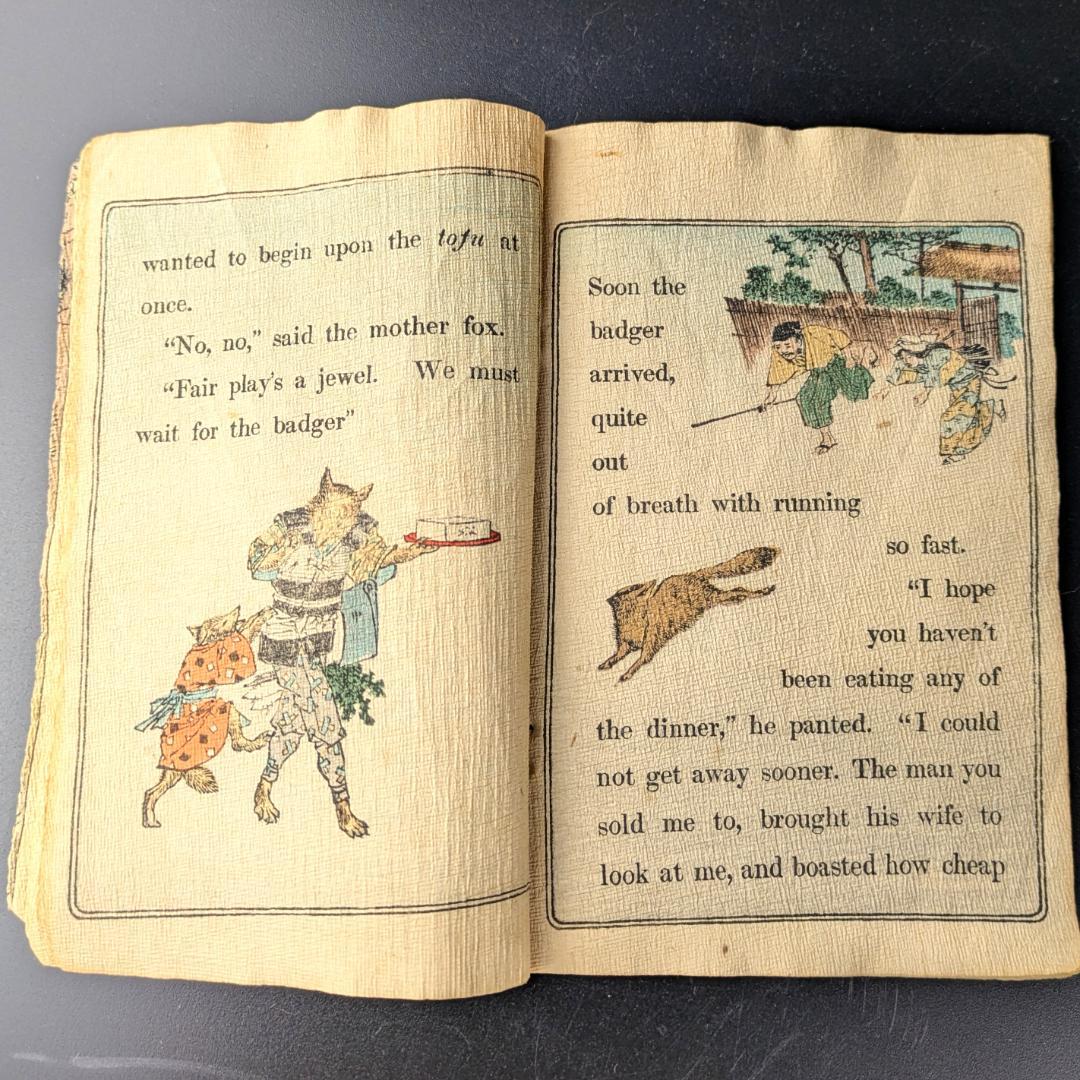 wanted to begin upon the tofu at
once.
“No, no,” said the mother fox.
“Fair play's a jewel. We must
wait for the badger”
Soon the
badger
arrived,
quite
out
of breath with running
so fast.
“I hope
you haven't
been eating any of
the dinner,” he panted. “I could
not get away sooner. The man you
sold me to, brought his wife to
look at me, and boasted how cheap